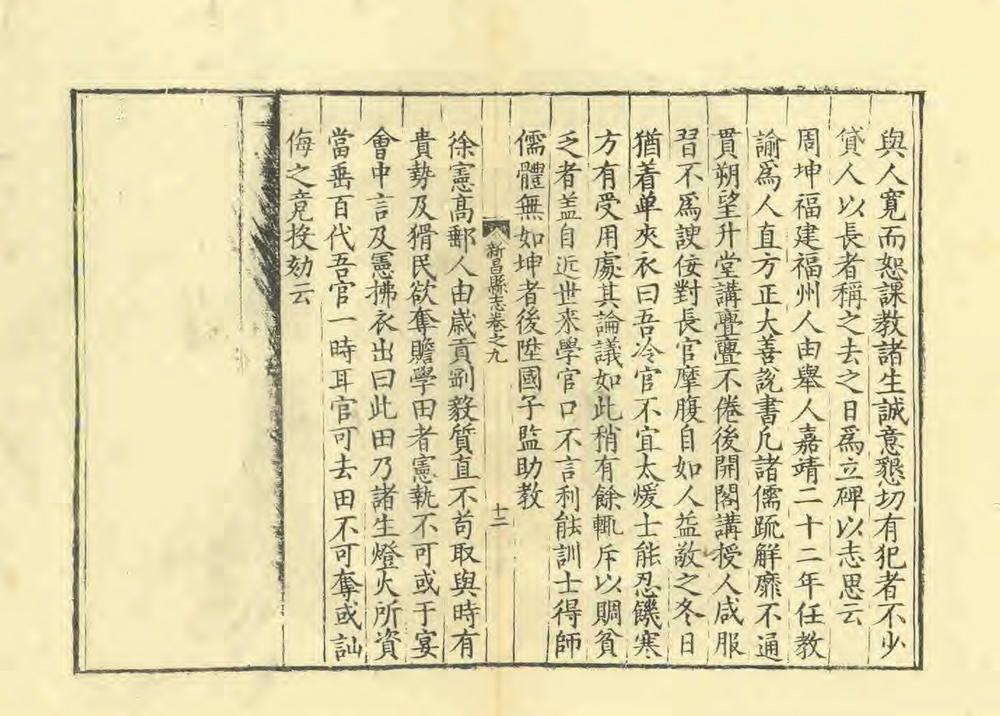 與人寬而恕課教諸生誠意懇切有犯者不少
貸人以長者稱之去之日爲立碑以志思云
周坤福建福州人由舉人嘉靖二十二年任教
諭爲人直方正大善說書凡諸儒疏解靡不通
貫朔望升堂講亹亹不倦後開閣講授人咸服
習不爲諛佞對長官摩腹自如人益敬之冬日
猶着单夾衣曰吾冷官不宜太煖士能忍饑寒
方有受用處其論議如此稍有餘輒斥以賙貧
乏者盖自近世来學官口不言利能訓士得師
儒體無如坤者後陞國子監助教
新昌縣志卷之九
十二
徐憲髙郵人由歲貢剛毅質直不苟取與時有
貴勢及猾民欲奪贍學田者憲執不可或于宴
會中言及憲拂衣出曰此田乃諸生燈火所資
當垂百代吾官一時耳官可去田不可奪或訕
侮之竟投劾云